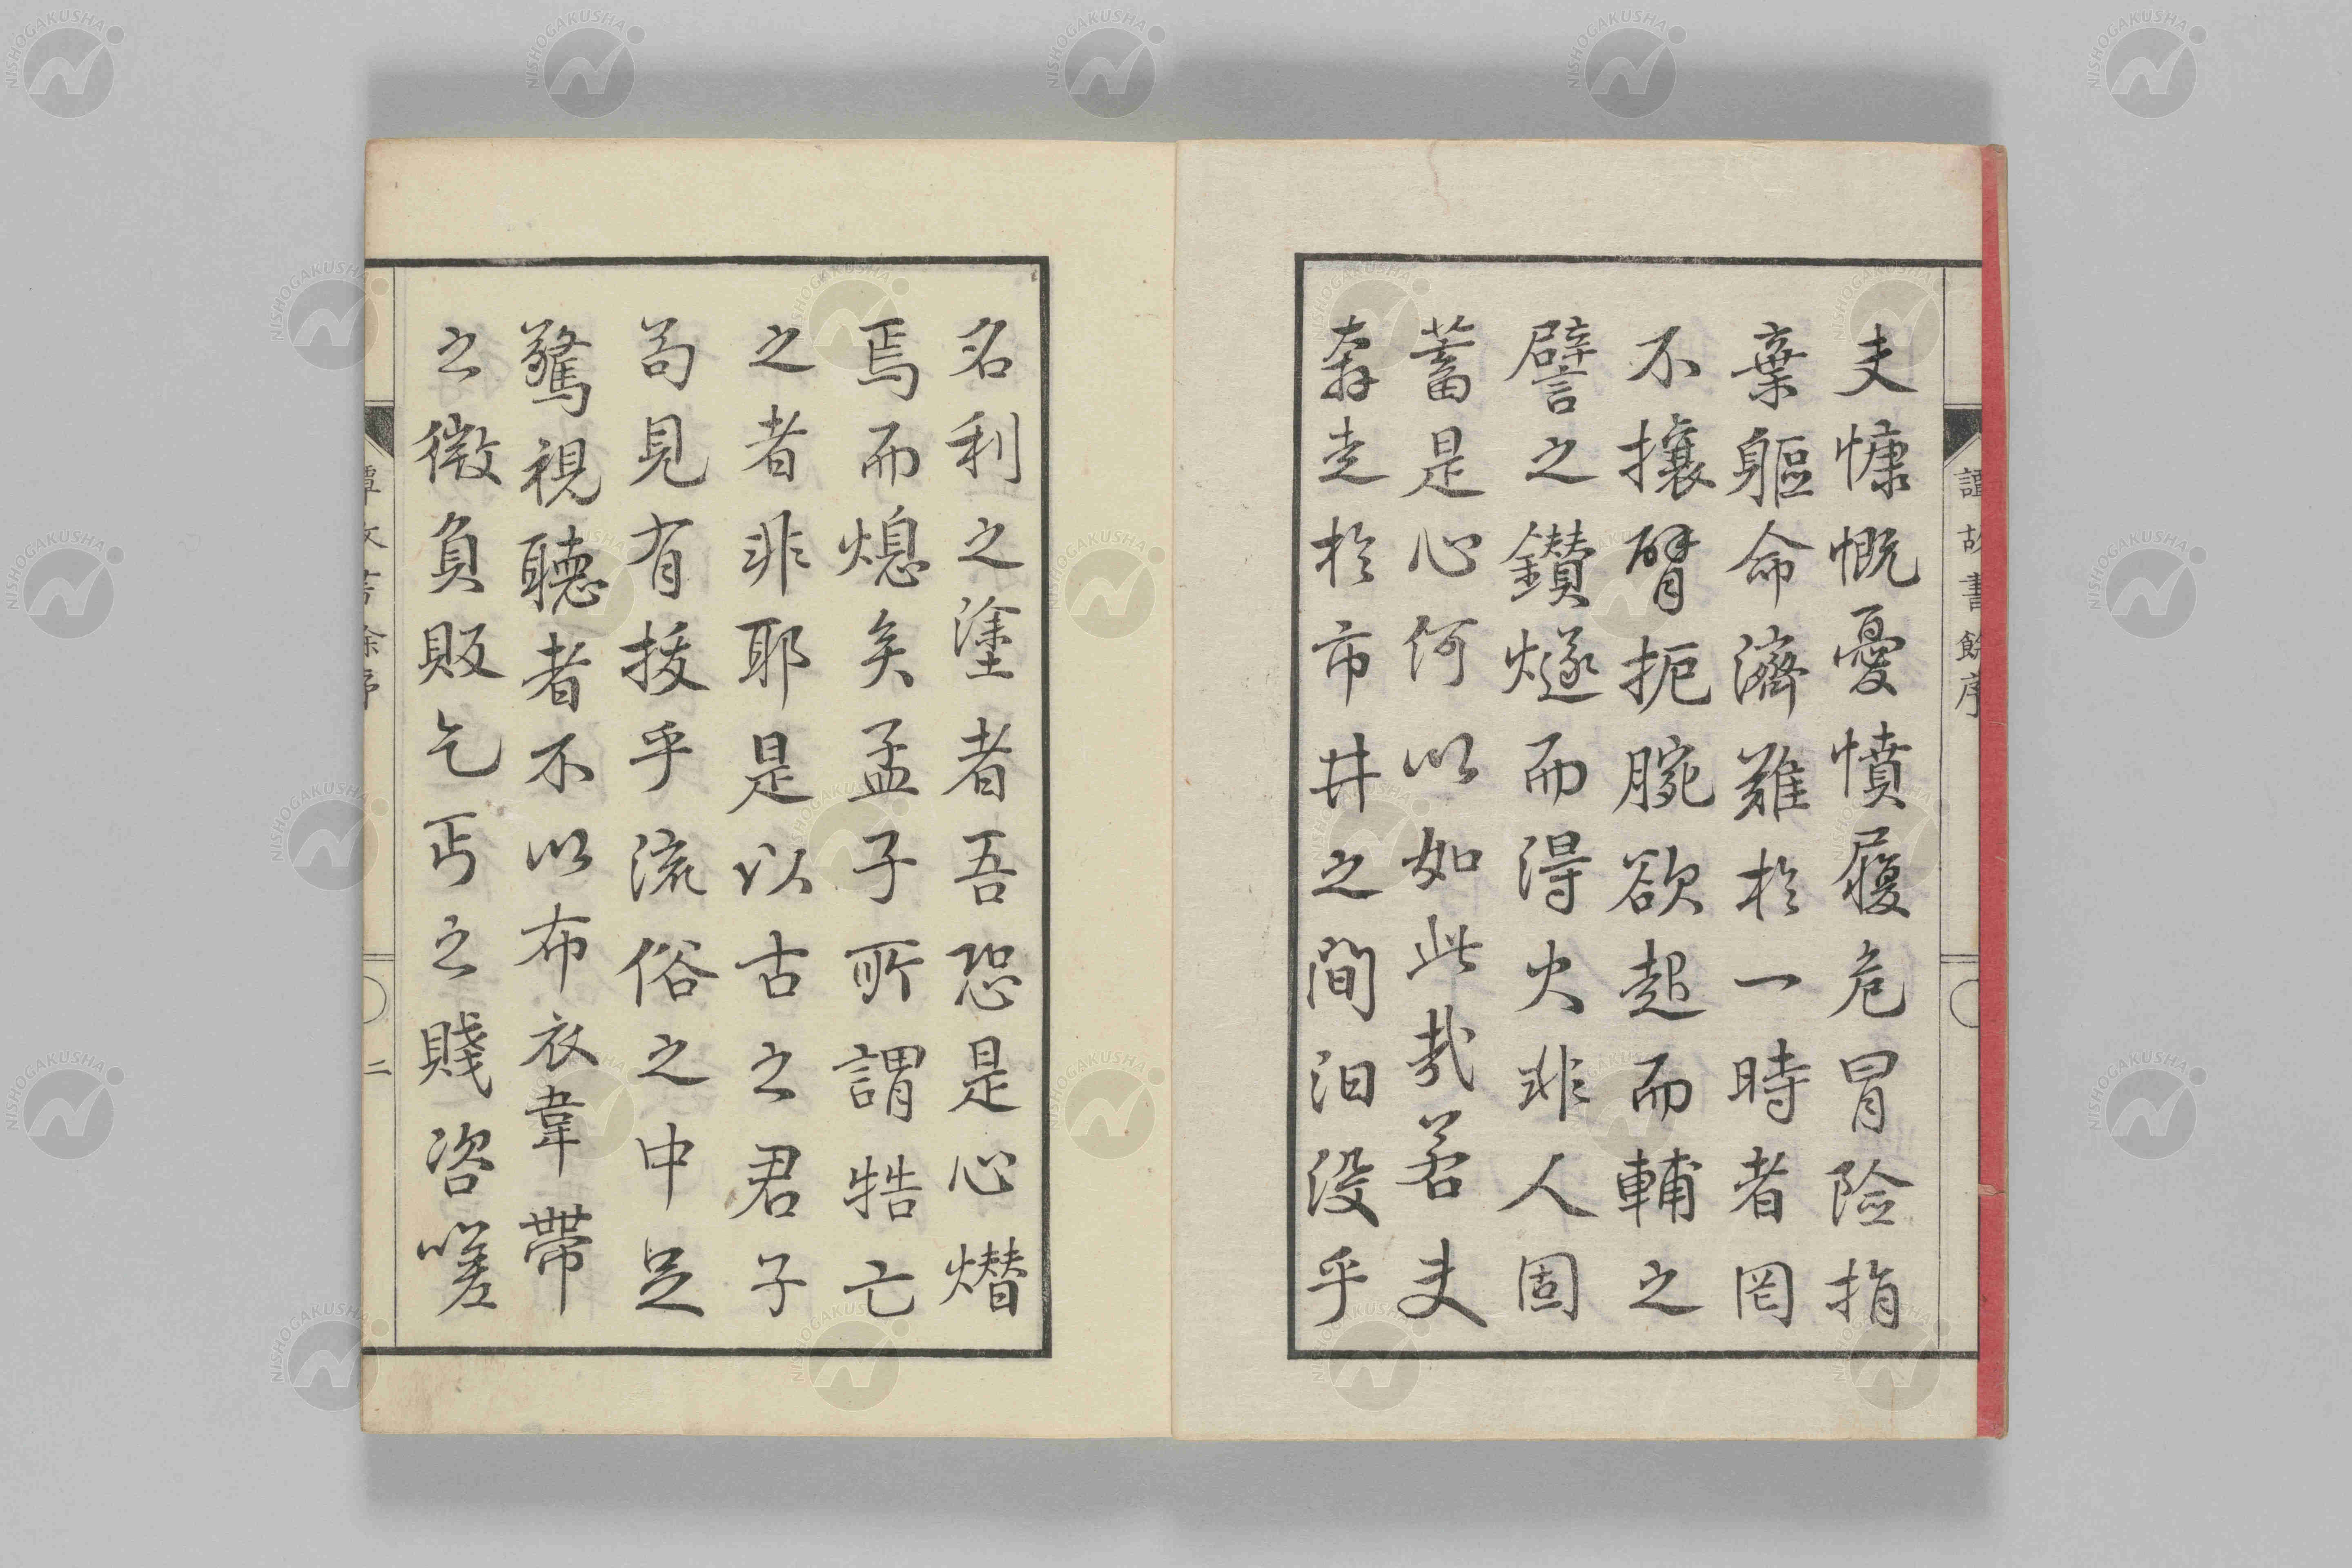 夫慷慨憂憤履危冒險指
棄軀命濟難於一時者罔
不攘臂扼腕欲起而輔之
譬之鑽燧而得火非人固
蓄是心何以如此哉若夫
奔走於市井之間汨没乎
名利之塗者吾恐是心熸
焉而熄矣孟子所謂牿亡
之者非耶是以古之君子
苟見有援乎流俗之中足
驚視聽者不以布衣韋帶
之微負販乞丐之賤咨嗟
故書餘序
二
NISHOGAKUSHA